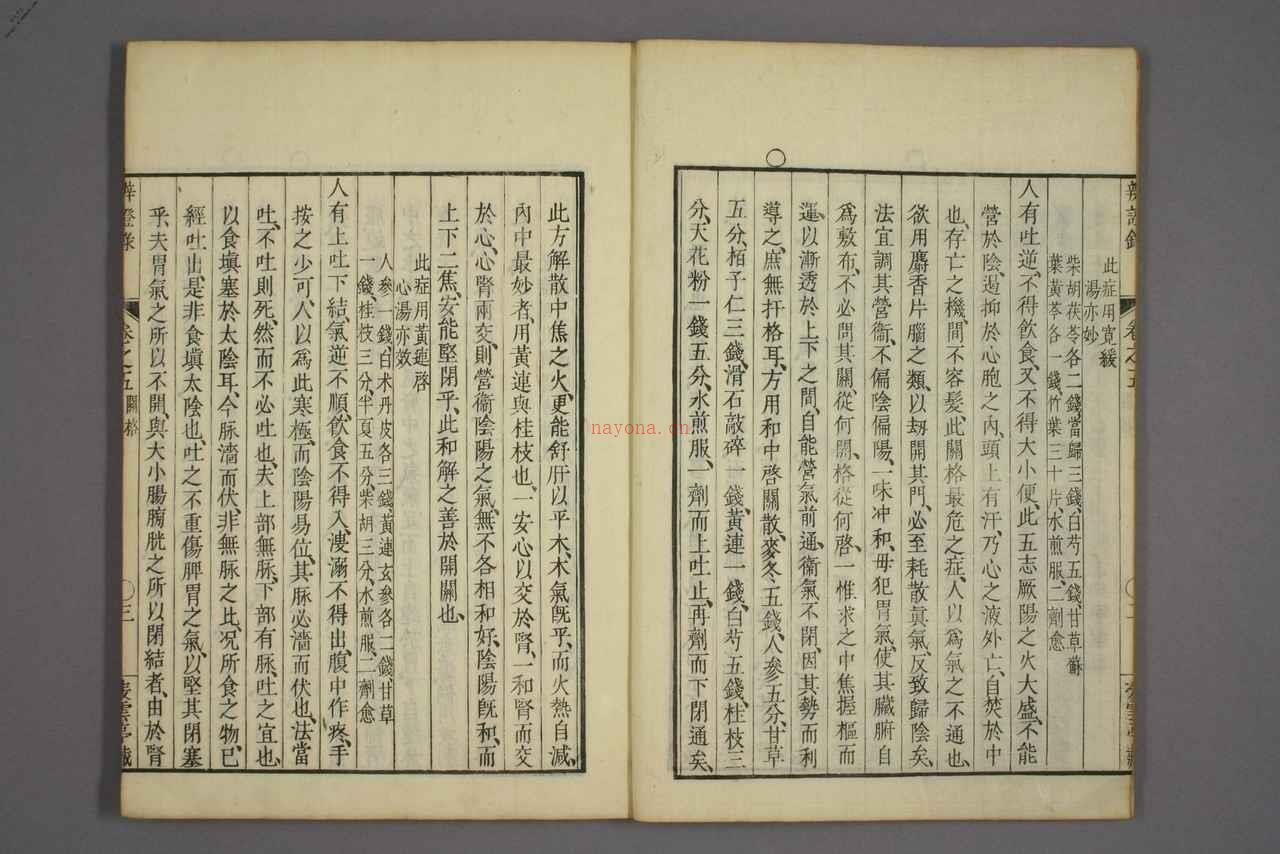 此症用寬緩
湯亦妙
柴胡茯苓各二錢當歸三錢白芍五錢甘草蘇
葉黃芩各一錢竹葉三十片水煎服二劑愈
人有吐逆、不得飲食、又不得大小便、此五志厥陽之火大盛、不能
營於陰、遏抑於心胞之內、頭上有汗、乃心之液外亡、自焚於中
也、存亡之機、間不容髮、此關格最危之症、人以爲氣之不通也、
欲用麝香片腦之類、以刼開其門、必至耗散眞氣、反致歸陰矣、
法宜調其營衞、不偏陰偏陽、一味冲和、毋犯胃氣、使其臟腑自
爲敷布、不必問其關從何開、格從何啓、一惟求之中焦握樞而
運、以漸透於上下之間、自能營氣前通、衞氣不閉、因其勢而利
導之、庶無扞格耳、方用和中啓關散、麥冬五錢、人參五分、甘草
五分、栢子仁三錢、滑石敲碎一錢、黃連一錢、白芍五錢、桂枝三
分、天花粉一錢五分、水煎服、一劑而上吐止、再劑而下閉通矣、
此方解散中焦之火、更能舒肝以平木、木氣旣平、而火熱自減、
內中最妙者、用黃連與桂枝也、一安心以交於腎、一和腎而交
於心、心腎兩交、則營衞陰陽之氣、無不各相和好、陰陽旣和、而
上下二焦、安能堅閉乎、此和解之善於開關也、
此症用黃連啓
心湯亦效
人參一錢白术丹皮各三錢黃連玄參各二錢甘草
一錢桂枝三分半夏五分柴胡三分水煎服二劑愈
人有上吐下結、氣逆不順、飲食不得入、溲溺不得出、腹中作疼、手
按之少可、人以爲此寒極、而陰陽易位、其脉必濇而伏也、法當
吐、不吐則死、然而不必吐也、夫上部無脉、下部有脉、吐之宜也、
以食塡塞於太陰耳、今脉濇而伏、非無脉之比、况所食之物、已
經吐出、是非食塡太陰也、吐之不重傷脾胃之氣、以堅其閉塞
乎、夫胃氣之所以不開、與大小腸膀胱之所以閉結者、由於腎
辨證錄
卷之五關格
三
nayona.cn